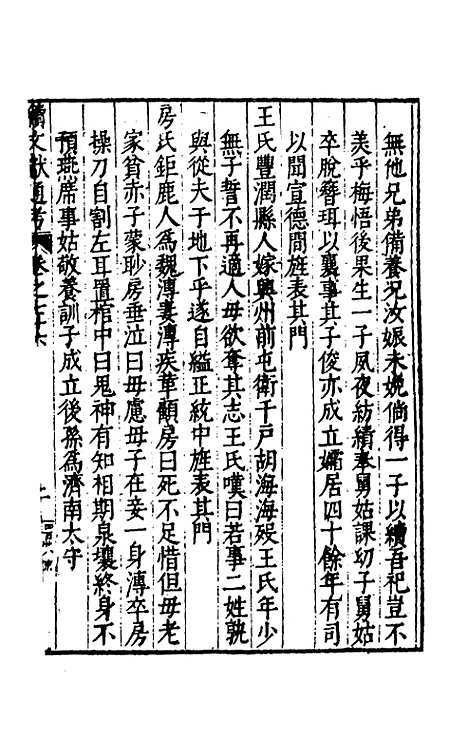 無他兄弟備養兄汝娠未娩倘得一子以續吾祀豈不
美乎梅悟後果生一子夙夜紡績奉舅姑課幼子舅姑
卒脫簪珥以襄事其子俊亦成立孀居四十餘年有司
以聞宣德間旌表其門
王氏豐潤縣人嫁興州前屯衛千戶胡海海殁王氏年少
無子誓不再適人母欲奪其志王氏嘆曰若事二姓孰
與從夫于地下乎遂自縊正統中旌表其門
房氏鉅鹿人為魏溥妻溥疾革顧房曰死不足惜但母老
家貧赤子蒙眇房垂泣曰毋慮母子在妾一身溥卒房
操刀自割左耳置棺中曰鬼神有知相期泉壤終身不
預燕席事姑敬養訓子成立後孫為濟南太守
續文獻通考 卷之七十六